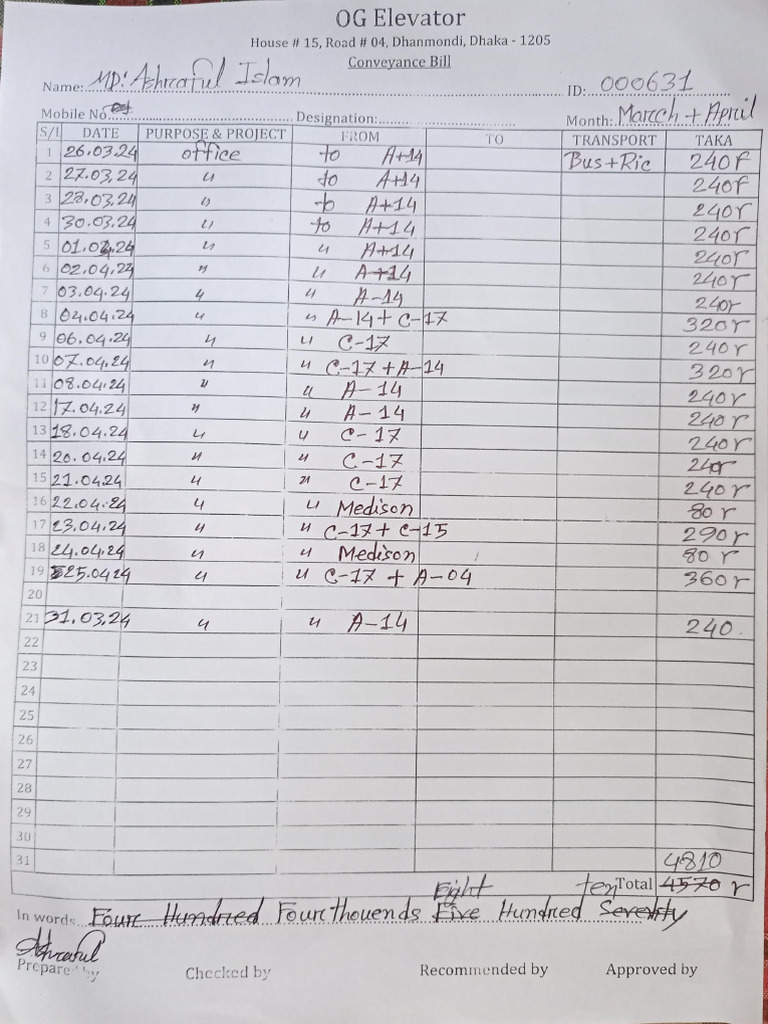 OG Elevator
House # 15, Road # 04, Dhanmondi, Dhaka - 1205
Conveyance Bill
Name: MD: Ashraful Islam ID: 000631
Mobile No. Designation: Month: March + April
S/I DATE PURPOSE & PROJECT FROM TO TRANSPORT TAKA
1 26.03.24 office to A+14 Bus+Ric 240r
2 27.03.24 " to A+14 240r
3 28.03.24 " to A+14 240r
4 30.03.24 " to A+14 240r
5 01.04.24 " " A+14 240r
6 02.04.24 " " A+14 240r
7 03.04.24 " " A-14 240r
8 04.04.24 " " A-14 + C-17 320r
9 06.04.24 " " C-17 240r
10 07.04.24 " " C-17 + A-14 320r
11 08.04.24 " " A-14 240r
12 17.04.24 " " A-14 240r
13 18.04.24 " " C-17 240r
14 20.04.24 " " C-17 240r
15 21.04.24 " " C-17 240r
16 22.04.24 " " Medison 80r
17 23.04.24 " " C-17 + C-15 290r
18 24.04.24 " " Medison 80r
19 25.04.24 " " C-17 + A-04 360r
20
21 31.03.24 " " A-14 240
22
23
24
25
26
27
28
29
30
31 4810
Eight ten Total 4570 r
In words Four Hundred Four thouends Five Hundred Seventy
Ashraful
Prepared by Checked by Recommended by Approved by